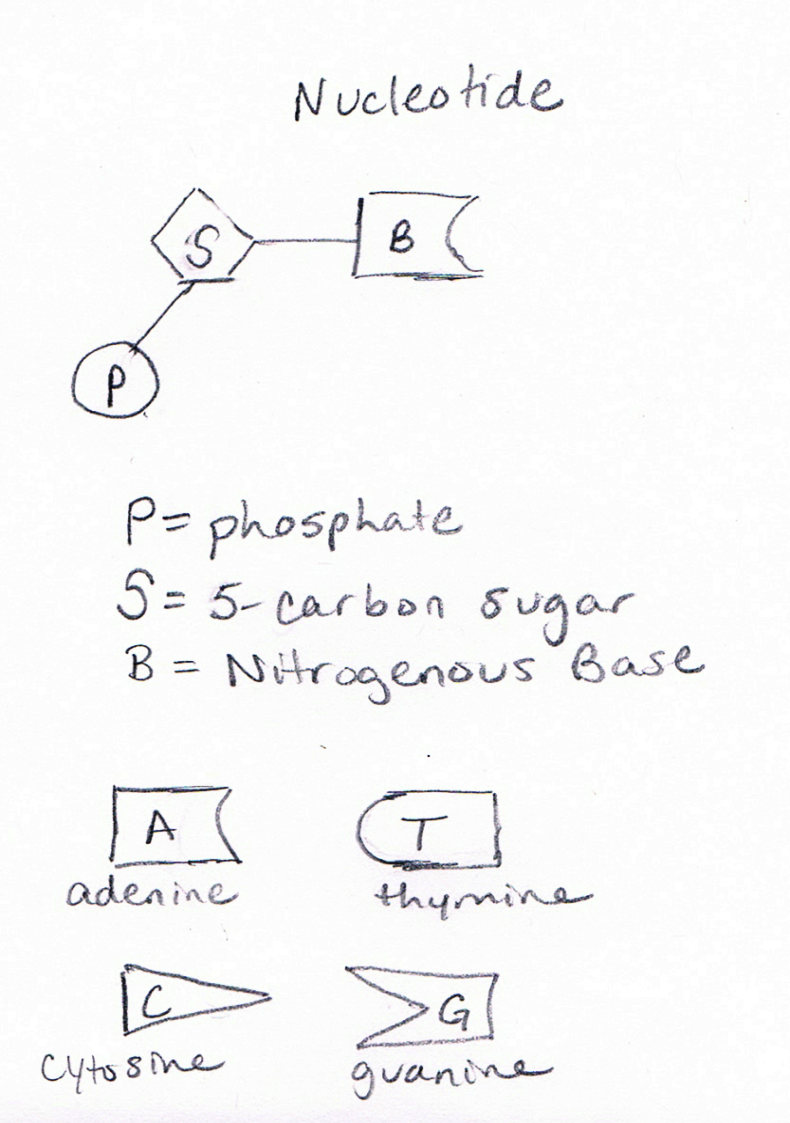 Nucleotide
S B
P
P = phosphate
S = 5-carbon sugar
B = Nitrogenous Base
A T
adenine thymine
C G
cytosine guanine